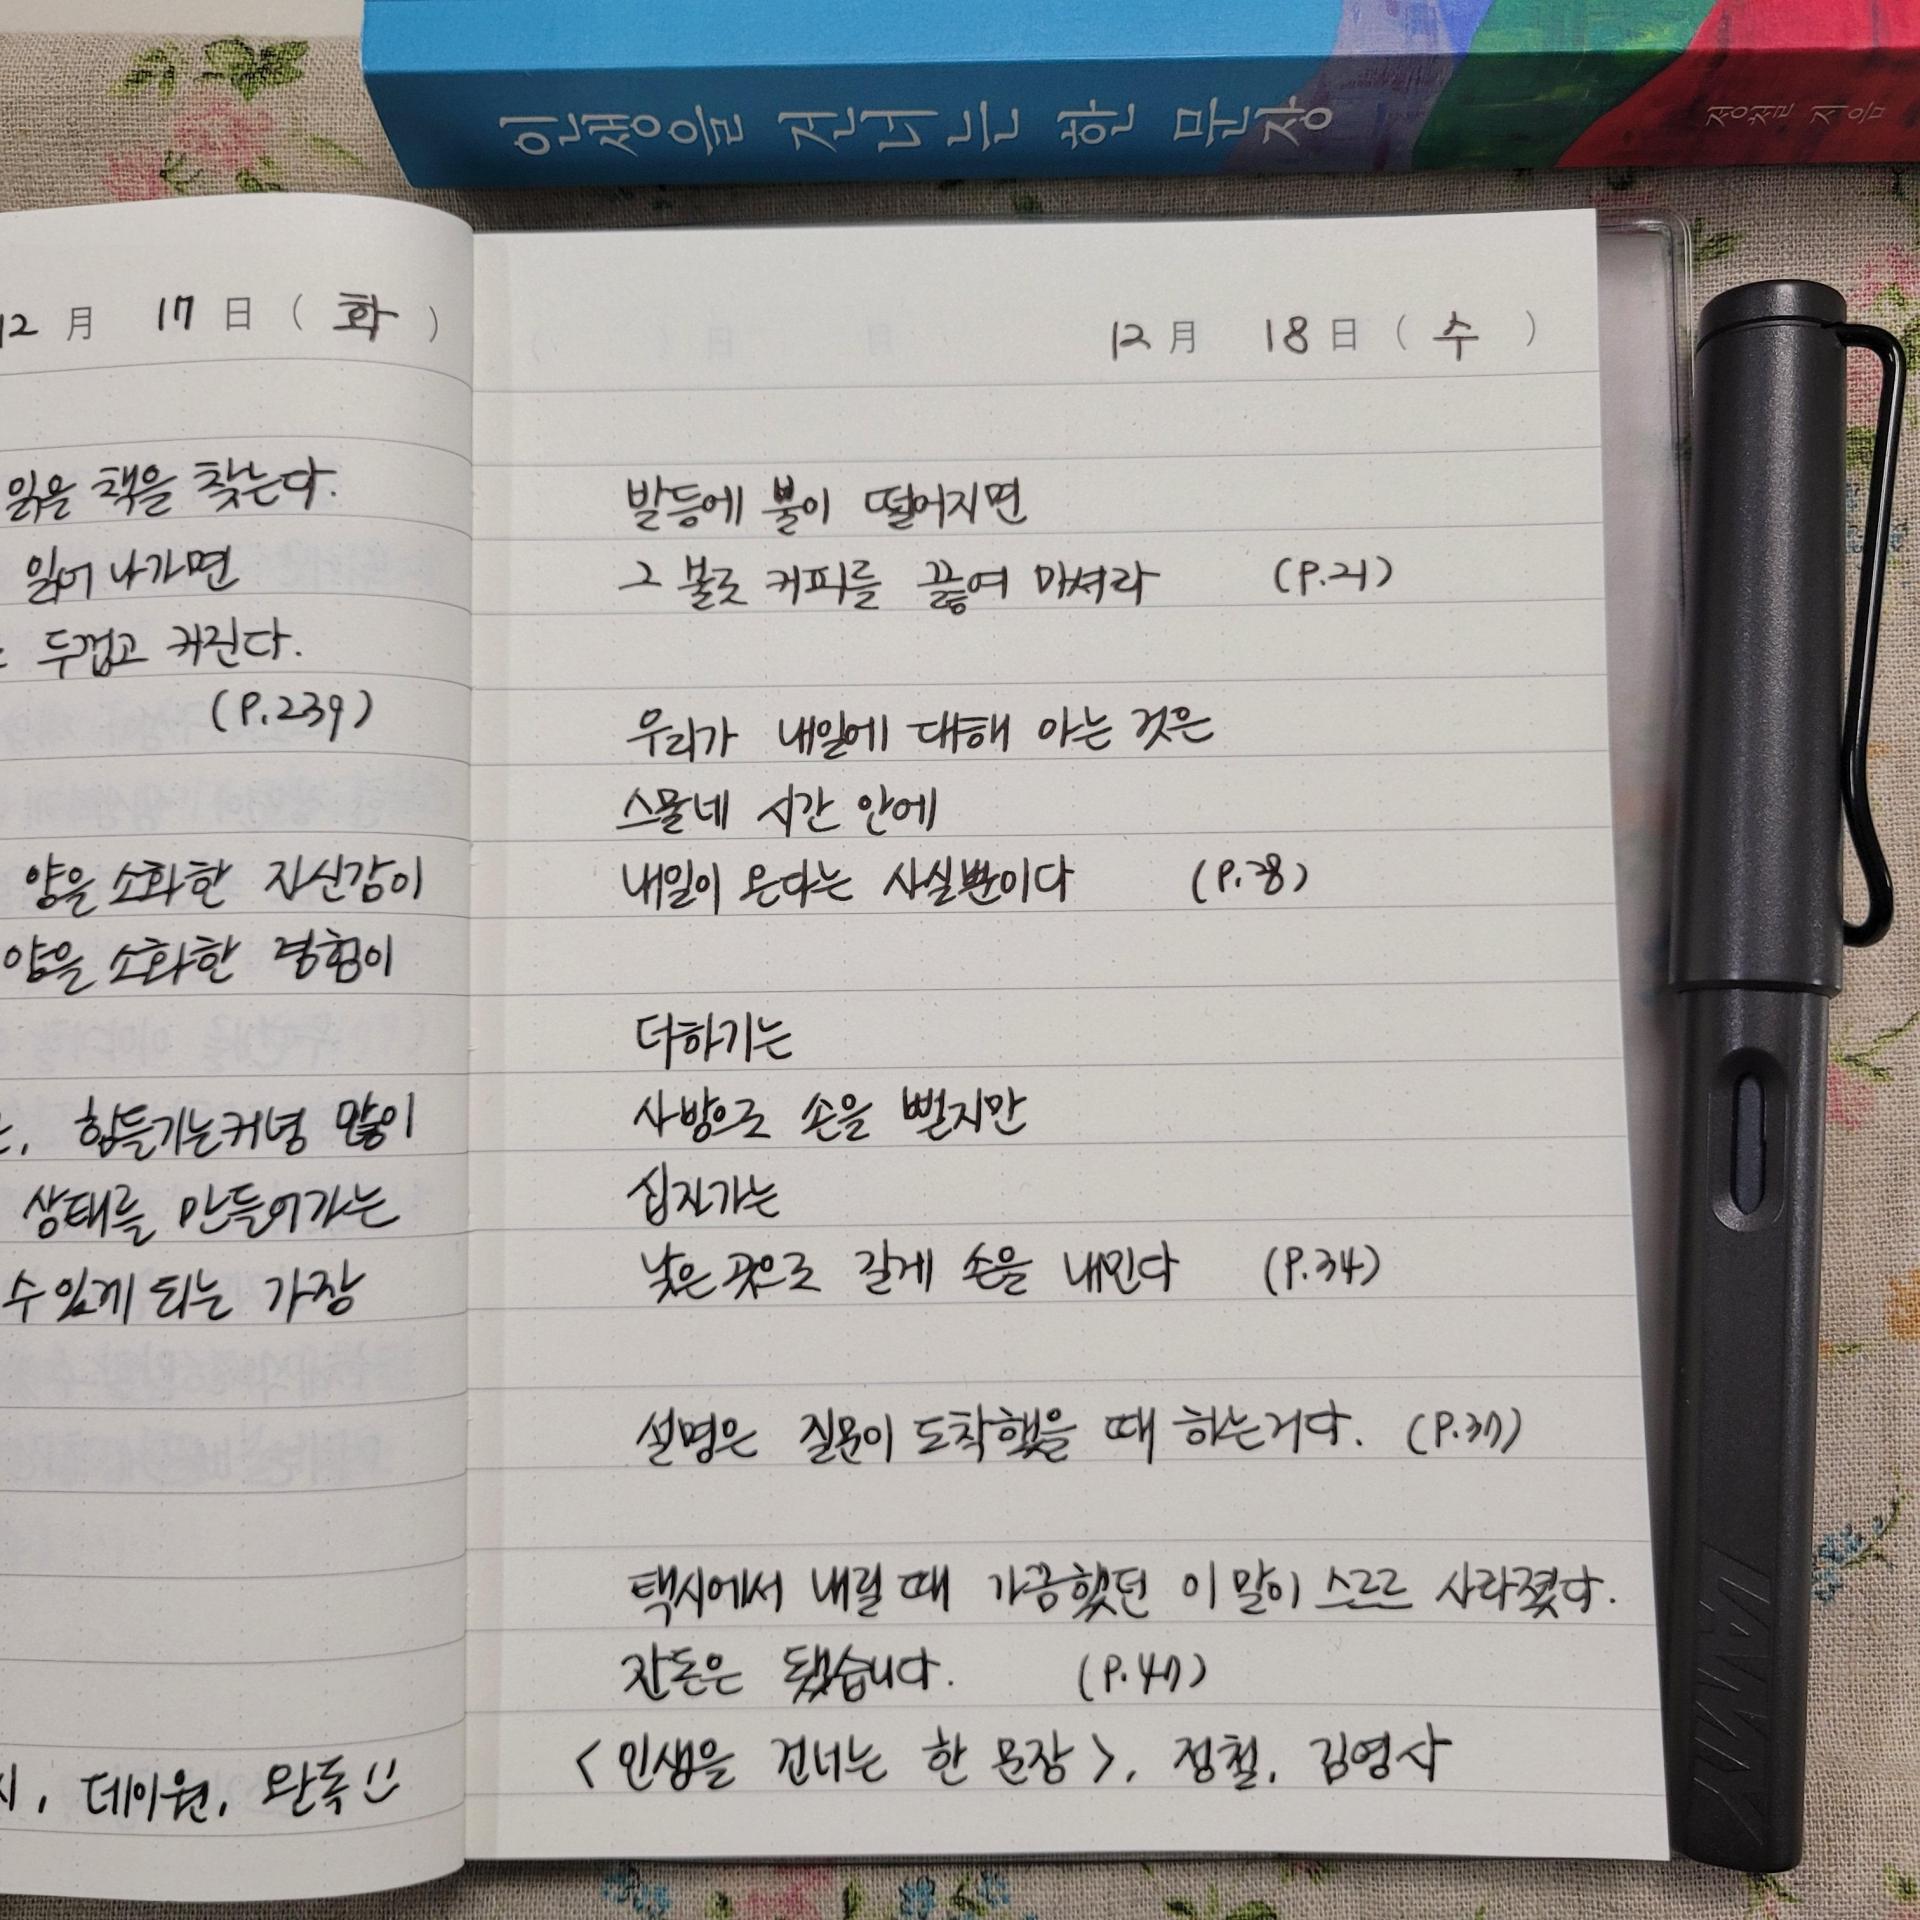 인생을 건너는 한 문장
정철 지음
12 月 17 日 ( 화 )
읽을 책을 찾는다.
읽어 나가면
두껍고 커진다.
(P.239)
양을 소화한 자신감이
양을 소화한 경험이
힘들기는커녕 많이
상태를 만들어가는
수 있게 되는 가장
데이원, 완독
12 月 18 日 ( 수 )
발등에 불이 떨어지면
그 불로 커피를 끓여 마셔라 (P.21)
우리가 내일에 대해 아는 것은
스물네 시간 안에
내일이 온다는 사실뿐이다 (P.28)
더하기는
사방으로 손을 뻗지만
십자가는
낮은 곳으로 길게 손을 내민다 (P.34)
설명은 질문이 도착했을 때 하는거다. (P.37)
택시에서 내릴 때 가끔했던 이 말이 스르르 사라졌다.
잔돈은 됐습니다. (P.47)
<인생을 건너는 한 문장>, 정철, 김영사
LAMY